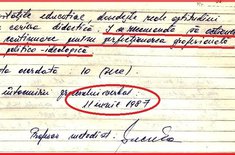 activitățile educative, dovedește reale aptitudini
cariera didactică. I se recomandă să
continuare pentru perfecționarea profesională
politico-ideologică
Nota acordată: 10 (zece)
întocmirii procesului verbal:
11 iunie 1987
Profesor metodist,